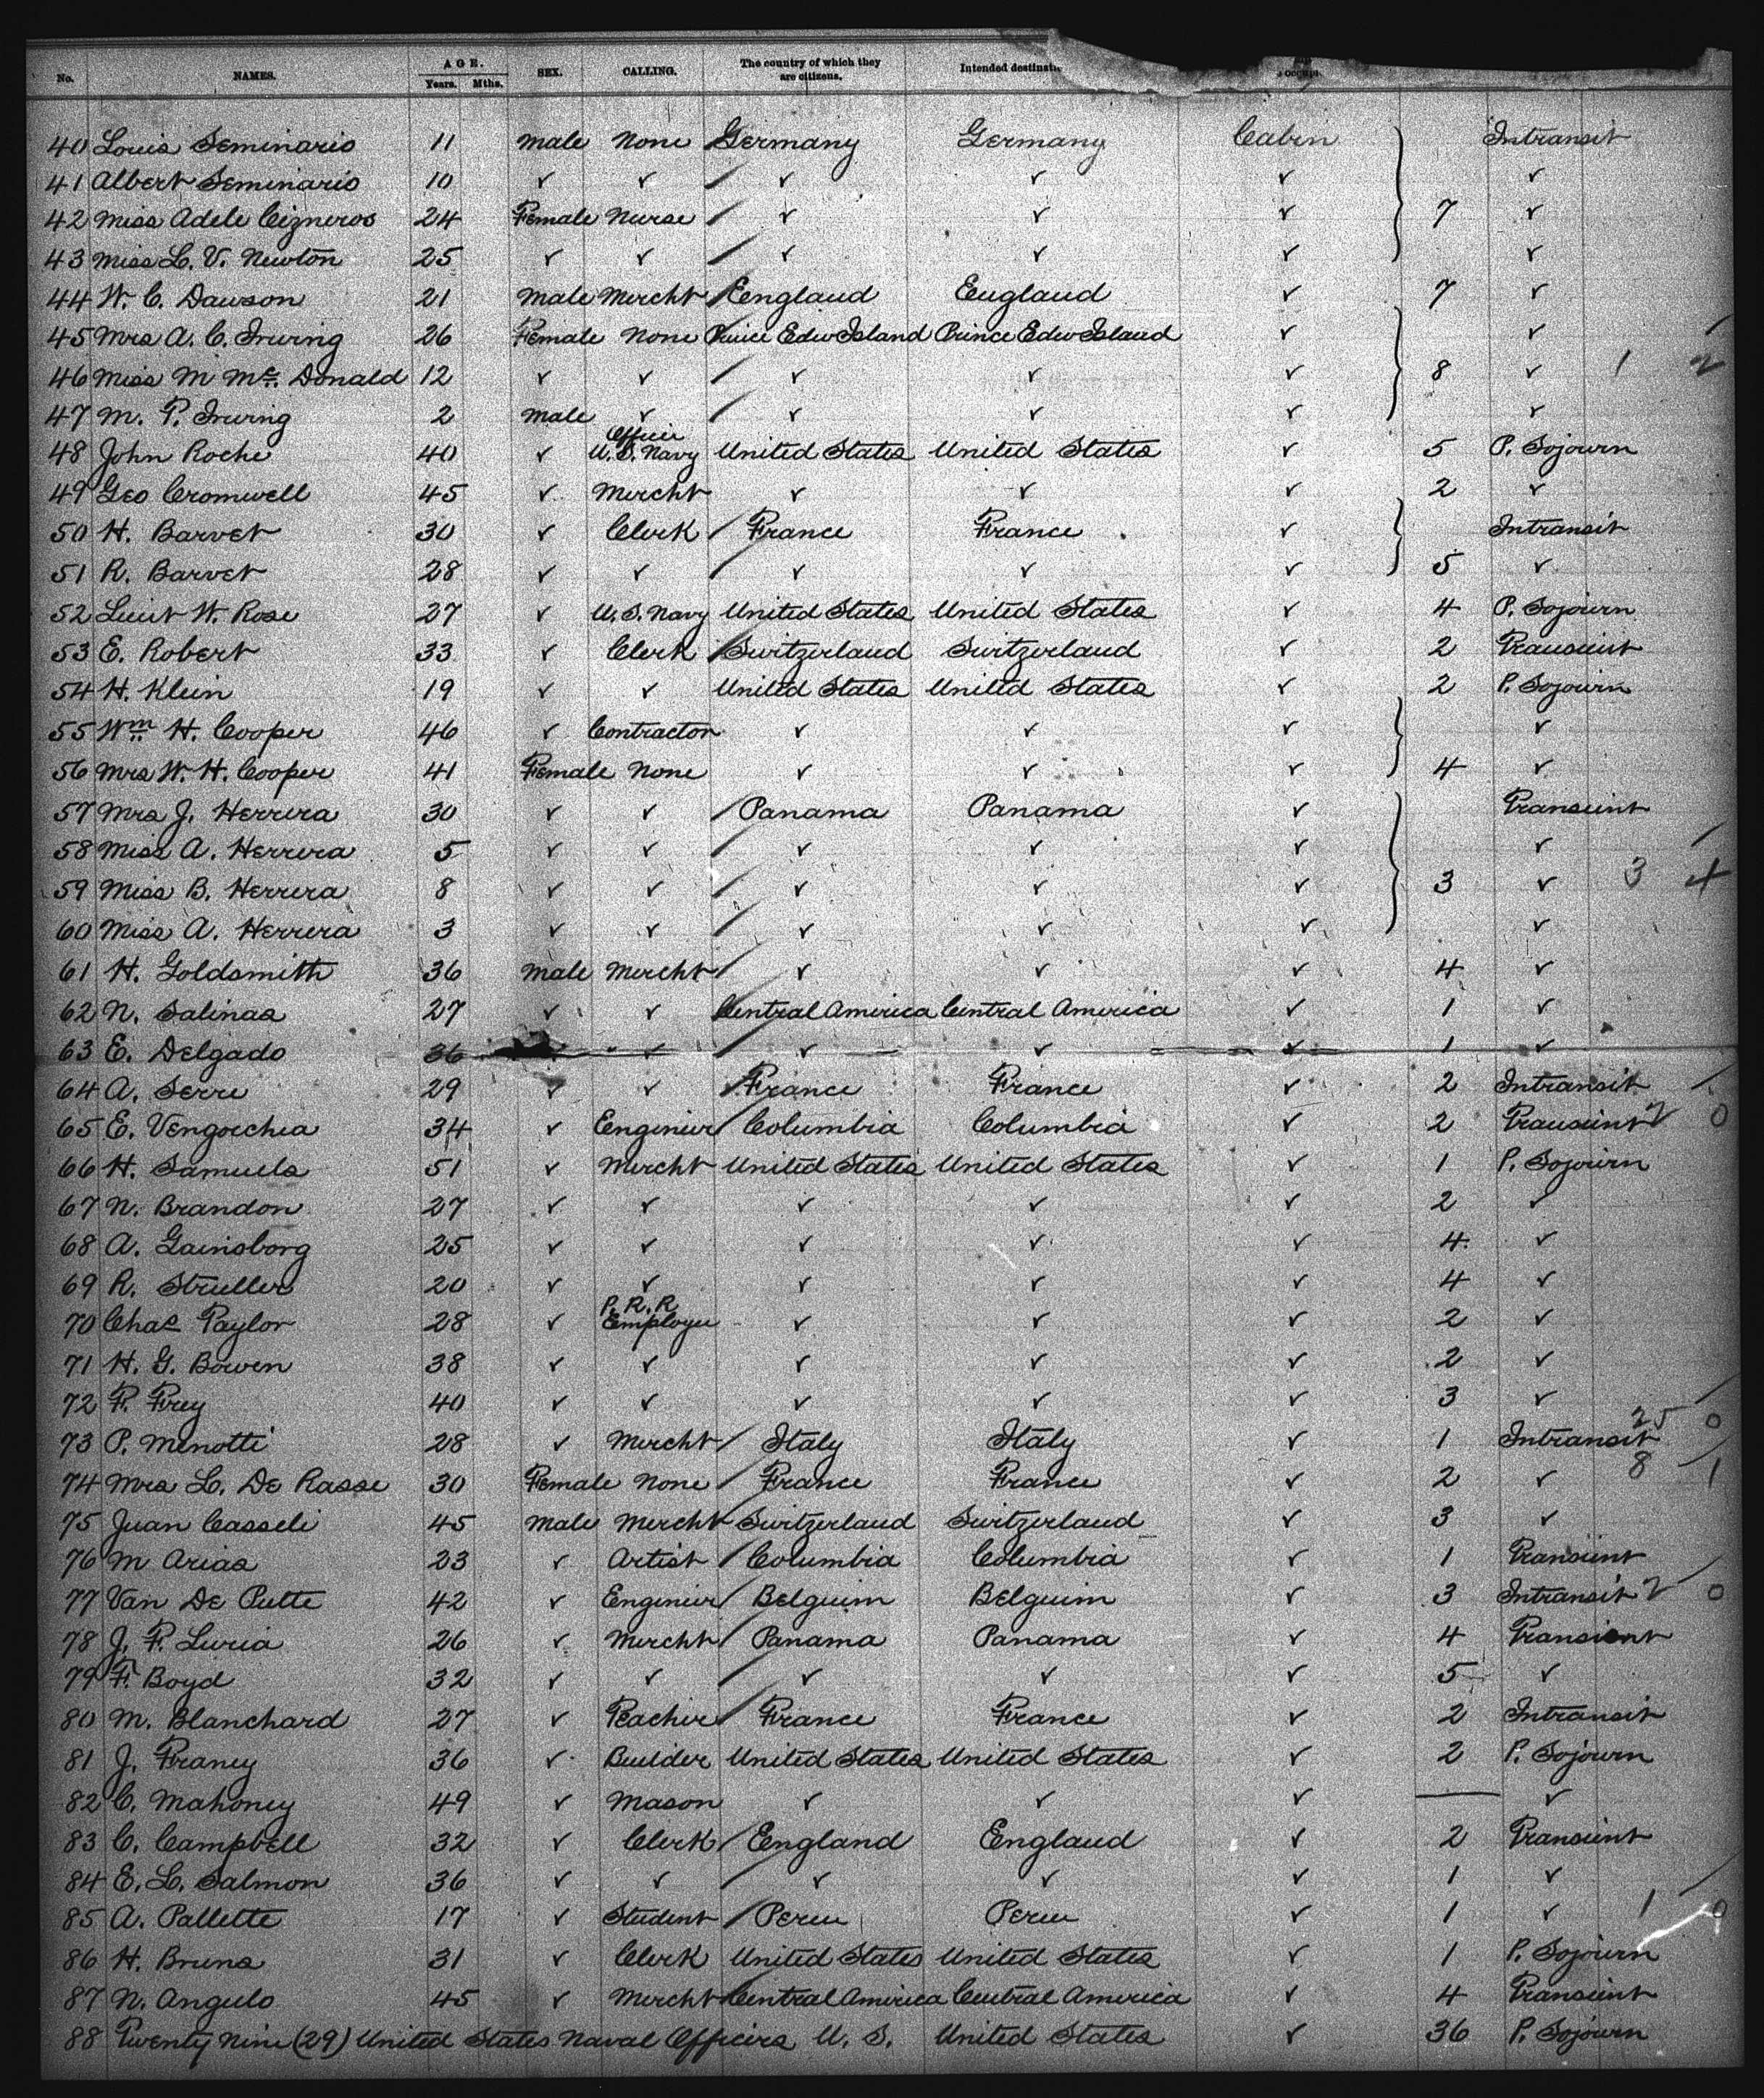 No. NAMES. AGE. Years. Mths. SEX. CALLING. The country of which they are citizens. Intended destinati
40 Louis Seminario 11 male None Germany Germany Cabin Intransit
41 Albert Seminario 10 ✓ ✓ ✓ ✓ ✓ ✓
42 Miss Adele Cizneros 24 Female Nurse ✓ ✓ ✓ 7 ✓
43 Miss L. V. Newton 25 ✓ ✓ ✓ ✓ ✓ ✓
44 W. C. Dawson 21 male Mercht England England ✓ 7 ✓
45 Mrs A. C. Irving 26 Female None Prince Edw Island Prince Edw Island ✓ ✓
46 Miss M Mc. Donald 12 ✓ ✓ ✓ ✓ ✓ 8 ✓ 1 2
47 M. P. Irving 2 male ✓ ✓ ✓ ✓ ✓
48 John Roche 40 ✓ Officer U.S. Navy United States United States ✓ 5 P. Sojourn
49 Geo Cromwell 45 ✓ Mercht ✓ ✓ ✓ 2 ✓
50 H. Barvet 30 ✓ Clerk France France ✓ Intransit
51 R. Barvet 28 ✓ ✓ ✓ ✓ ✓ 5 ✓
52 Lieut W. Rose 27 ✓ U.S. Navy United States United States ✓ 4 P. Sojourn
53 E. Robert 33 ✓ Clerk Switzerland Switzerland ✓ 2 Transient
54 H. Klein 19 ✓ ✓ United States United States ✓ 2 P. Sojourn
55 Wm H. Cooper 46 ✓ Contractor ✓ ✓ ✓ ✓
56 Mrs W. H. Cooper 41 Female None ✓ ✓ ✓ 4 ✓
57 Mrs J. Herrera 30 ✓ ✓ Panama Panama ✓ Transient
58 Miss A. Herrera 5 ✓ ✓ ✓ ✓ ✓ ✓
59 Miss B. Herrera 8 ✓ ✓ ✓ ✓ ✓ 3 ✓ 3 4
60 Miss A. Herrera 3 ✓ ✓ ✓ ✓ ✓ ✓
61 H. Goldsmith 36 male Mercht ✓ ✓ ✓ 4 ✓
62 N. Salinas 27 ✓ ✓ Central America Central America ✓ 1 ✓
63 E. Delgado 36 ✓ ✓ ✓ ✓ 1 ✓
64 A. Serre 29 ✓ ✓ France France ✓ 2 Intransit
65 E. Vengoechea 34 ✓ Engineer Columbia Columbia ✓ 2 Transient 2 0
66 H. Samuels 51 ✓ Mercht United States United States ✓ 1 P. Sojourn
67 N. Brandon 27 ✓ ✓ ✓ ✓ ✓ 2 ✓
68 A. Gainsborg 25 ✓ ✓ ✓ ✓ ✓ 4 ✓
69 R. Struller 20 ✓ ✓ ✓ ✓ ✓ 4 ✓
70 Chas Taylor 28 ✓ P. R. R Employee ✓ ✓ ✓ 2 ✓
71 H. G. Bowen 38 ✓ ✓ ✓ ✓ ✓ 2 ✓
72 F. Frey 40 ✓ ✓ ✓ ✓ ✓ 3 ✓
73 P. Menotti 28 ✓ Mercht Italy Italy ✓ 1 Intransit 25 0
74 Mrs L. De Rasse 30 Female None France France ✓ 2 ✓ 8 1
75 Juan Casseli 45 male Mercht Switzerland Switzerland ✓ 3 ✓
76 M Arias 23 ✓ Artist Columbia Columbia ✓ 1 Transient
77 Van De Putte 42 ✓ Engineer Belguim Belguim ✓ 3 Intransit 2 0
78 J. F. Luria 26 ✓ Mercht Panama Panama ✓ 4 Transient
79 F. Boyd 32 ✓ ✓ ✓ ✓ ✓ 5 ✓
80 M. Blanchard 27 ✓ Teacher France France ✓ 2 Intransit
81 J. Franey 36 ✓ Builder United States United States ✓ 2 P. Sojourn
82 C. Mahoney 49 ✓ Mason ✓ ✓ ✓ — ✓
83 C. Campbell 32 ✓ Clerk England England ✓ 2 Transient
84 E. L. Salmon 36 ✓ ✓ ✓ ✓ ✓ 1 ✓
85 A. Pallette 17 ✓ Student Peru Peru ✓ 1 ✓ 1 0
86 H. Bruns 31 ✓ Clerk United States United States ✓ 1 P. Sojourn
87 N. Angulo 45 ✓ Mercht Central America Central America ✓ 4 Transient
88 Twenty Nine (29) United States Naval Officers U. S. United States ✓ 36 P. Sojourn